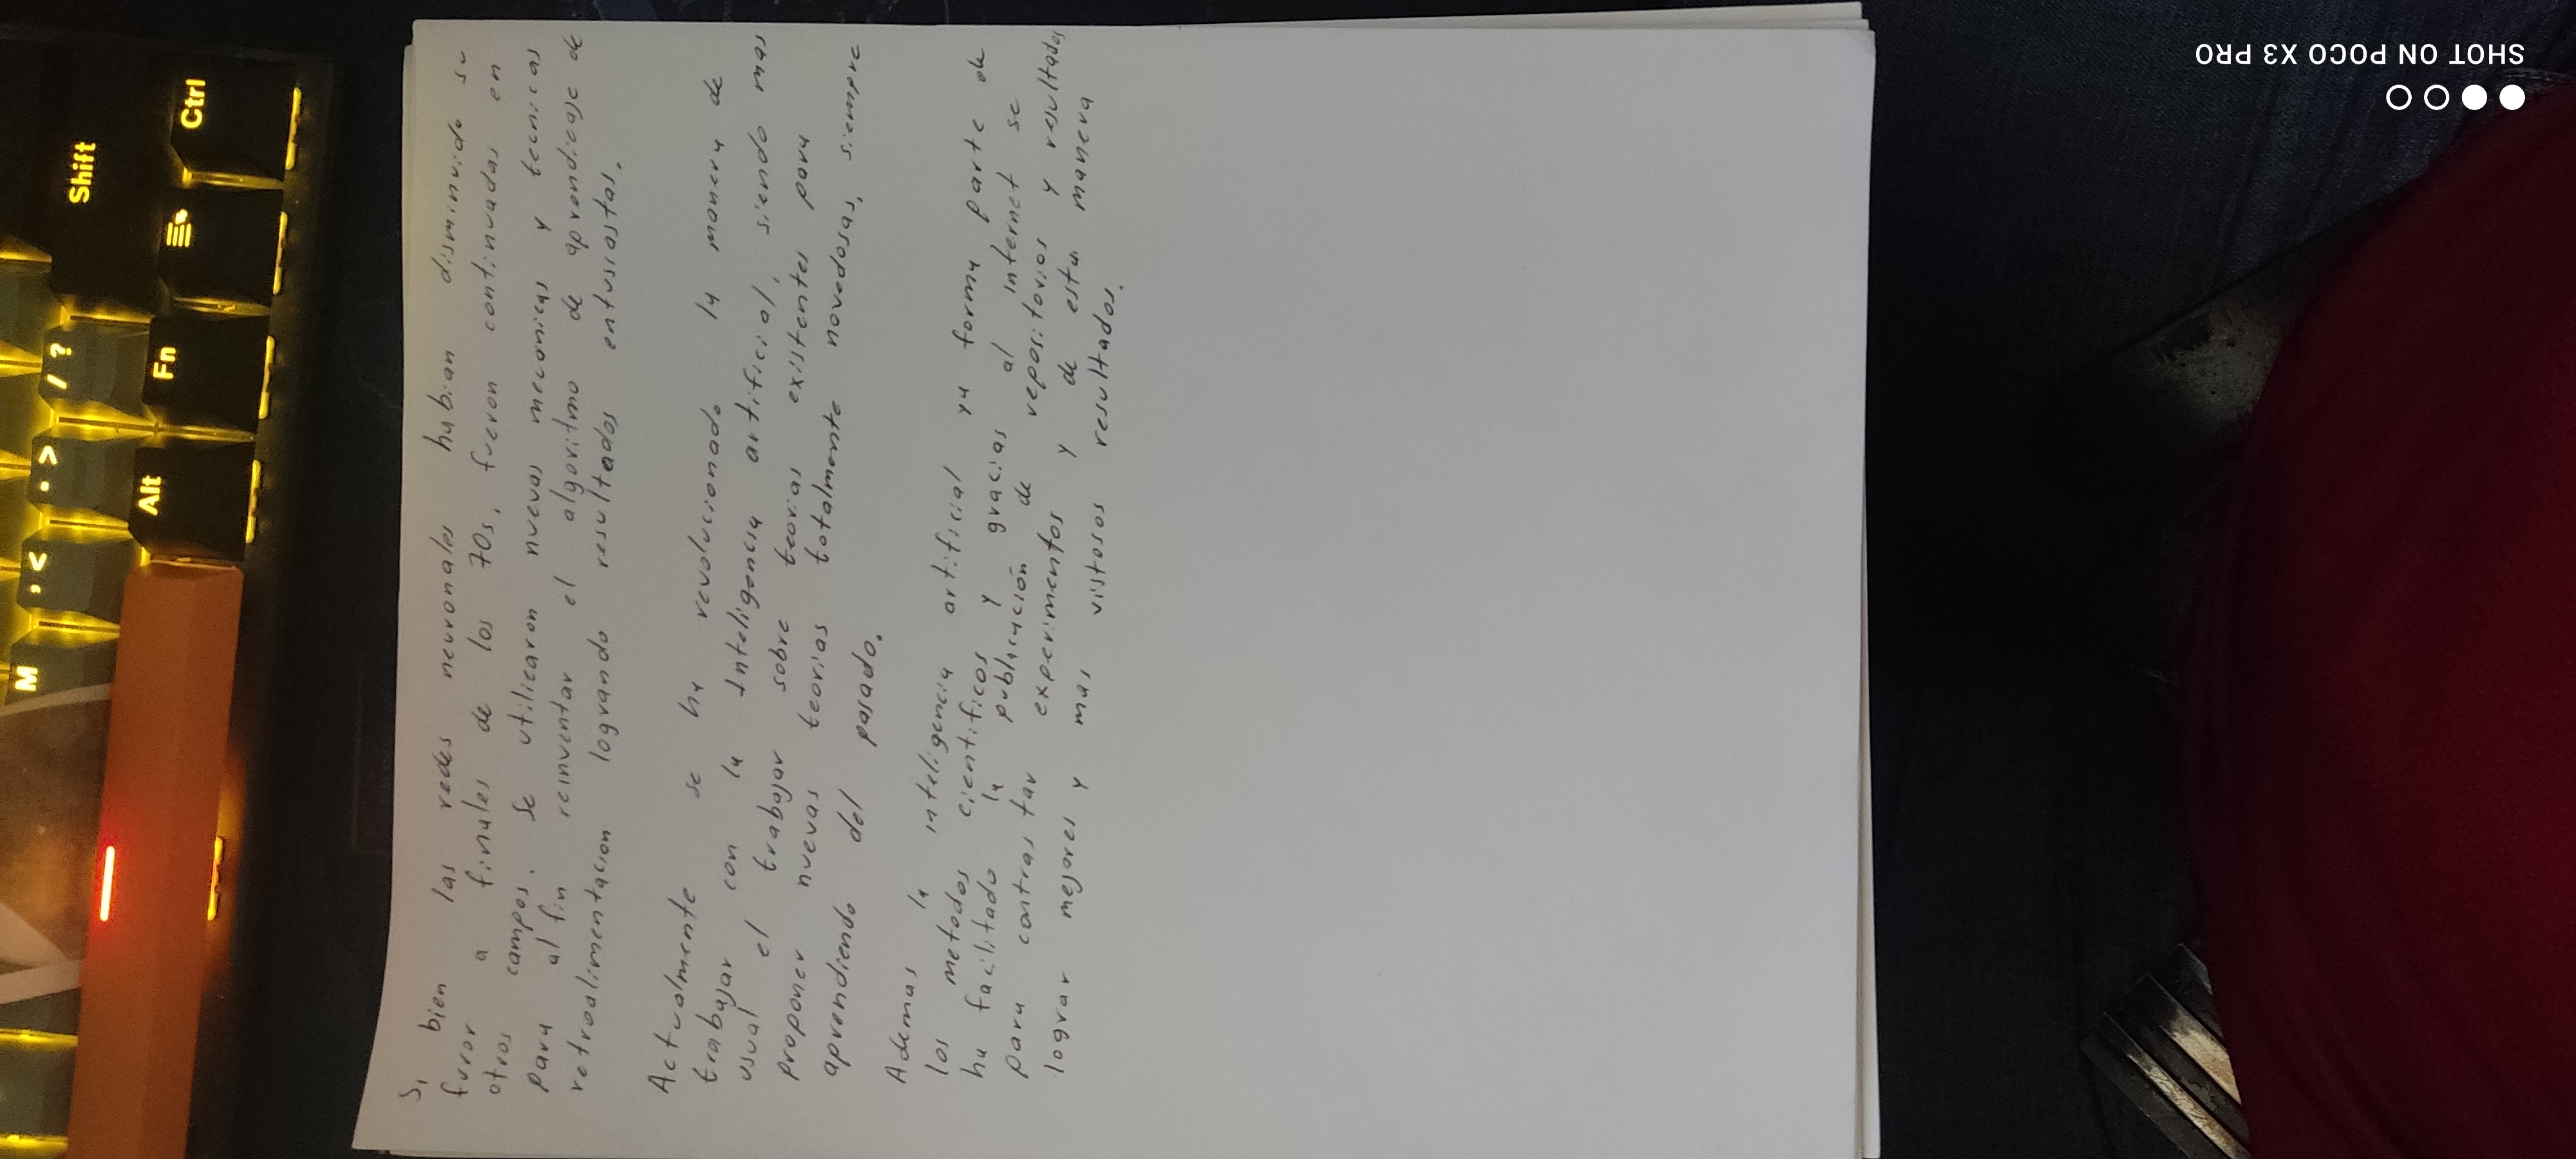 Si bien las redes neuronales habian disminuido su
furor a finales de los 70s, fueron continuadas en
otros campos. Se utilicaron nuevas mecanicas y tecnicas
para al fin reinventar el algoritmo de aprendizaje de
retroalimentacion logrando resultados entusiastas.
Actualmente se ha revolucionado la manera de
trabajar con la Inteligencia artificial, siendo mas
usual el trabajar sobre teorias existentes para
proponer nuevas teorias totalmente novedosas, siempre
aprendiendo del pasado.
Ademas la inteligencia artificial ya forma parte de
los metodos cientificos y gracias al internet se
ha facilitado la publicación de repositorios y resultados
para contrastar experimentos y de esta manera
lograr mejores y mas vistosos resultados.
M
, <
. >
/ ?
Alt
Fn
Shift
Ctrl
SHOT ON POCO X3 PRO